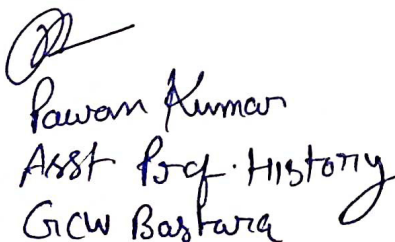 Pawan Kumar
Asst Prof. History
GCW Bastara